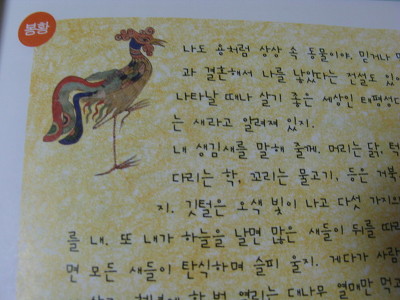 봉황
나도 용처럼 상상 속 동물이야. 믿거나
과 결혼해서 나를 낳았다는 전설도 있어
나타날 때나 살기 좋은 세상인 태평성대
는 새라고 알려져 있지.
내 생김새를 말해 줄게. 머리는 닭, 턱
다리는 학, 꼬리는 물고기, 등은 거북
지. 깃털은 오색 빛이 나고 다섯 가지의
를 내. 또 내가 하늘을 날면 많은 새들이 뒤를 따라
면 모든 새들이 탄식하며 슬피 울지. 게다가 사람
한 번 열리는 대나무 열매만 먹고